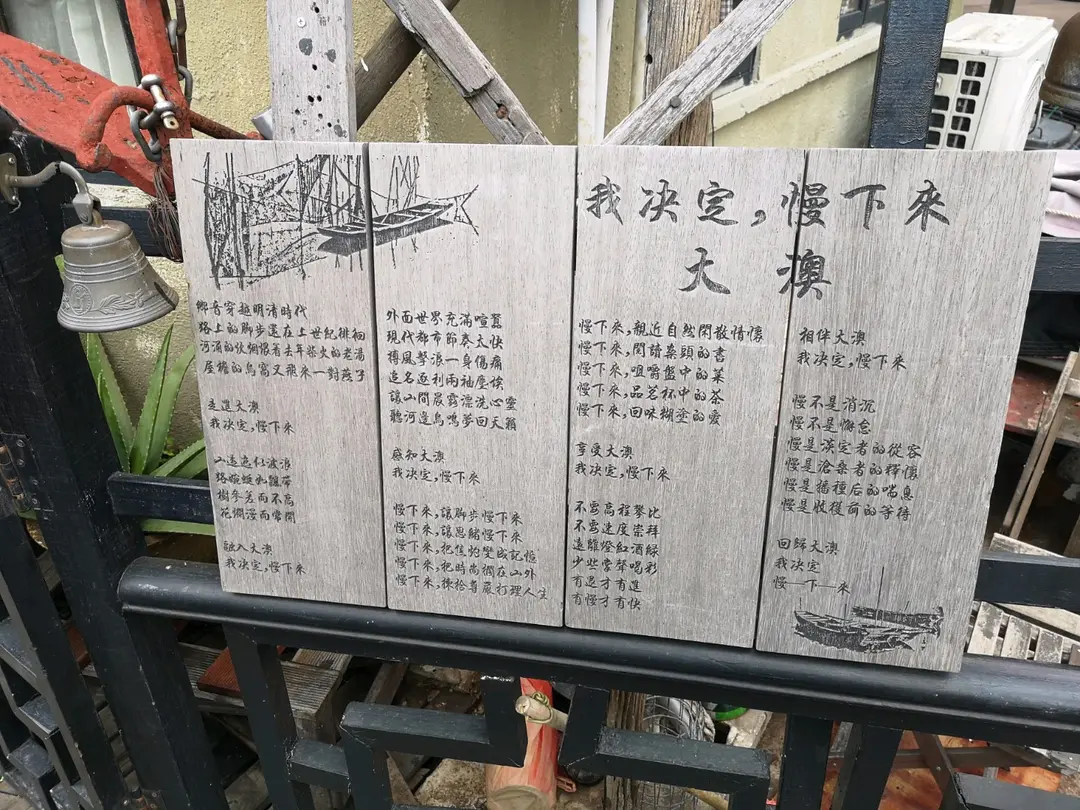 我决定,慢下來
大澳
鄉音穿越明清時代
路上的脚步還在上世紀徘徊
河涌的炊烟燉着去年柴火的老湯
屋檐的鳥窩又飛來一對燕子
走進大澳
我决定,慢下來
山遠逸似波浪
路蜿蜒如飄帶
樹參差而不高
花爛漫而常開
融入大澳
我决定,慢下來
外面世界充滿喧囂
現代都市節奏太快
搏風擊浪一身傷痛
追名逐利兩袖塵埃
讓山間晨露漂洗心靈
聽河邊鳥鳴夢回天籟
感知大澳
我决定,慢下來
慢下來,讓脚步慢下來
慢下來,讓思緒慢下來
慢下來,把焦灼變成記憶
慢下來,把時尚擱在山外
慢下來,揀拾尊嚴打理人生
慢下來,親近自然閑散情懷
慢下來,閱讀案頭的書
慢下來,咀嚼盤中的菜
慢下來,品茗杯中的茶
慢下來,回味糊塗的愛
享受大澳
我决定,慢下來
不要高程攀比
不要速度崇拜
遠離燈紅酒緑
少些掌聲喝彩
有退才有進
有慢才有快
相伴大澳
我决定,慢下來
慢不是消沉
慢不是懈怠
慢是淡定者的從容
慢是滄桑者的釋懷
慢是播種后的喘息
慢是收獲前的等待
回歸大澳
我决定
慢一下一來